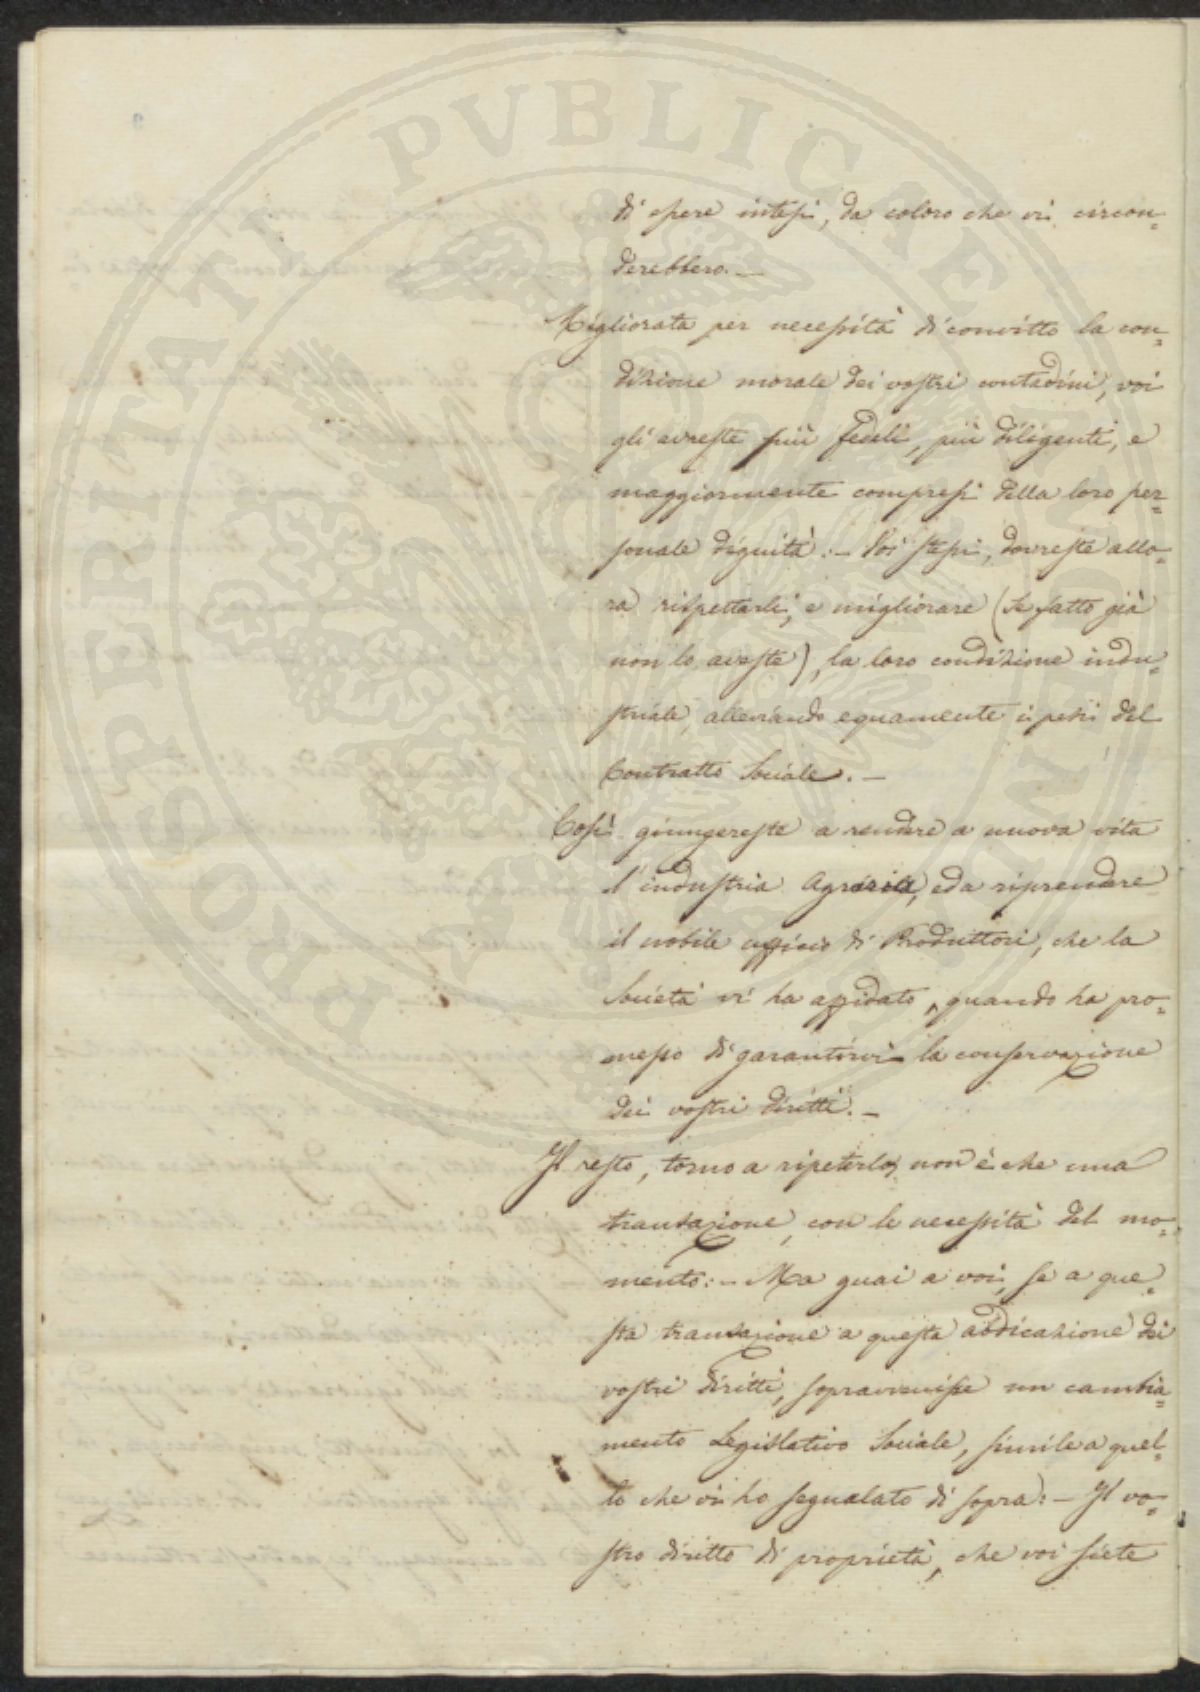 di essere intesi, da coloro che vi circon=
derebbero. —
Migliorata per necessità di convitto la con=
dizione morale dei vostri contadini, voi
gli avreste più fedeli, più diligenti, e
maggiormente compresi della loro per=
sonale dignità. — Voi stessi, dovreste allo=
ra rispettarli, e migliorare (se fatto già
non lo aveste), la loro condizione indu=
striale, alleviando equamente i pesi del
Contratto Sociale. —
Così giungereste a rendere a nuova vita
l'industria Agraria, ed a riprendere
il nobile ufficio di Produttori, che la
Società vi ha affidato, quando ha pro=
messo di garantirvi la conservazione
dei vostri diritti. —
Il resto, torno a ripeterlo, non è che una
transazione, con le necessità del mo=
mento: — Ma guai a voi, se a que=
sta transazione a questa abdicazione dei
vostri diritti, sopravvenisse un cambia=
mento Legislativo Sociale, simile a quel=
lo che vi ho segnalato di sopra: — Il vo=
stro diritto di proprietà, che voi siete
PROSPERITATI PVBLICAE